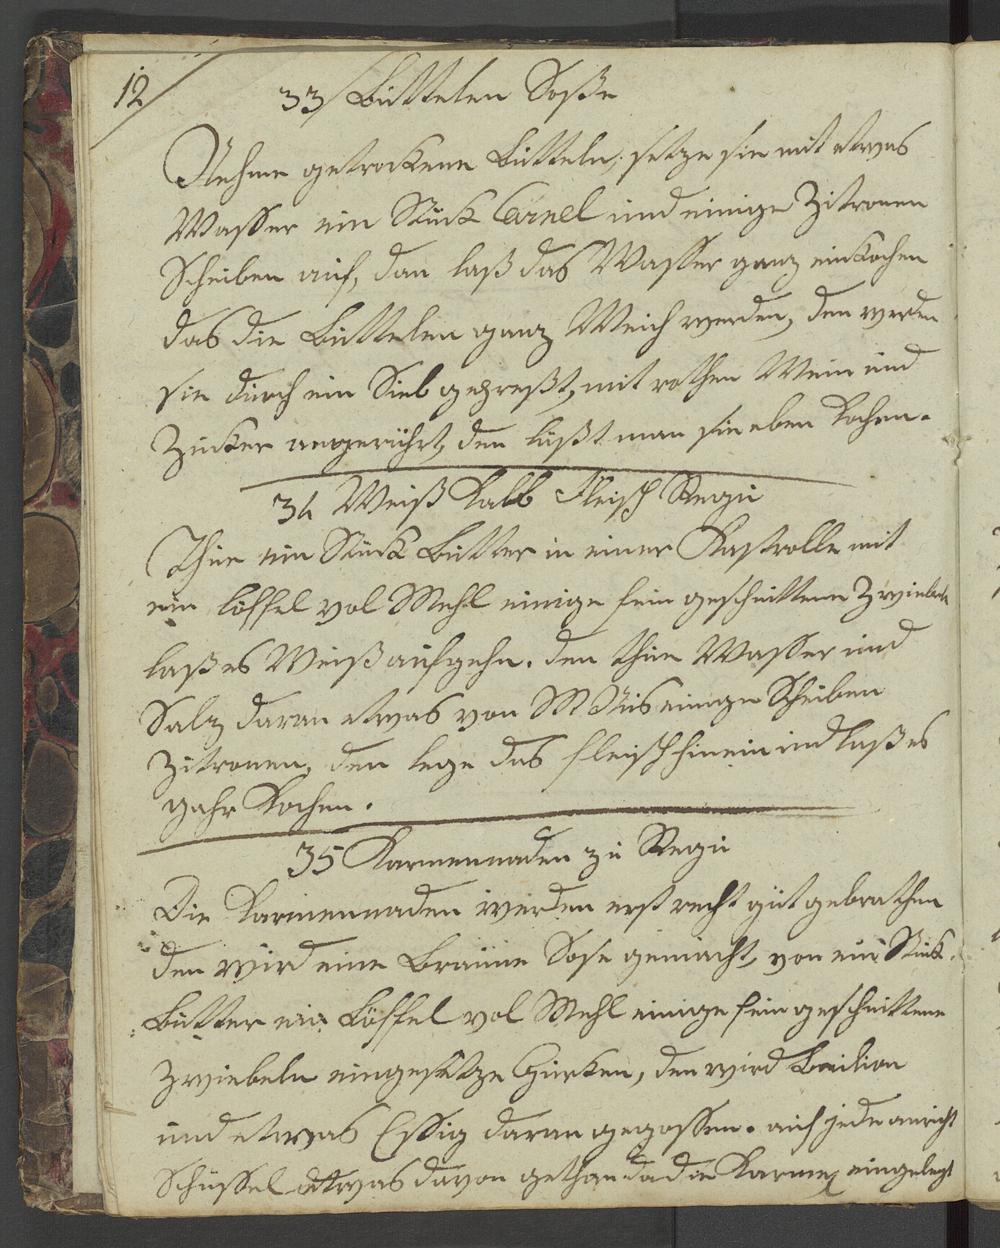 12
33 Büttelen Soße
Nehme getrockene Bütteln, setze sie mit etwas
Wasser ein Stück Canel und einige Zitronen
Scheiben auf, dan laß das Wasser ganz einkochen
das die Büttelen ganz Weich werden, den werden
sie durch ein Sieb gepreßt, mit rothen Wein und
Zucker angerührt, den läßt man sie eben Kochen.
34 Weiß Kalb Fleisch Ragu
Thue ein Stück Butter in einer Kastrolle mit
ein löffel vol Mehl einige fein geschnittene Zwiebeln
laß es Weiß aufgehn. den thue Wasser und
Salz daran etwas von einige Scheiben
Zitronen, den lege das fleisch hinein und laß es
gahr Kochen.
35 Karmennaden zu Ragu
Die Karmennaden werden erst recht gut gebrathen
den wird eine Braune Sose gemacht, von ein Stück
Butter ein Löffel vol Mehl einige fein geschnittene
Zwiebeln eingesetze Gurken, den wird Boulion
und etwas Essig daran gegossen. auf jede anricht
Schüssel etwas davon gethan da die Karme eingelegt